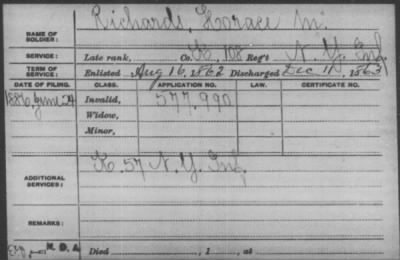 NAME OF SOLDIER: Richards, Horace M.
SERVICE: Late rank, Co. K, 108 Reg't N. Y. Inf.
TERM OF SERVICE: Enlisted Aug 16, 1862 Discharged Dec 11, 1863
DATE OF FILING. CLASS. APPLICATION NO. LAW. CERTIFICATE NO.
1886, June 24 Invalid, 577.990
Widow,
Minor,
ADDITIONAL SERVICES: K. 57 N. Y. Inf.
REMARKS:
Died , 1 , at